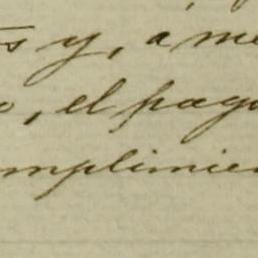 s y, a me
, el pago
mplimien